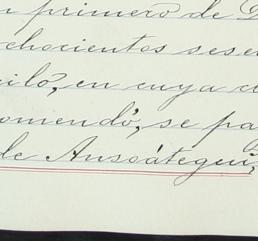 n primero de D
chocientos sese
uilo, en cuya c
omendó, se pa
de Anssátegui,